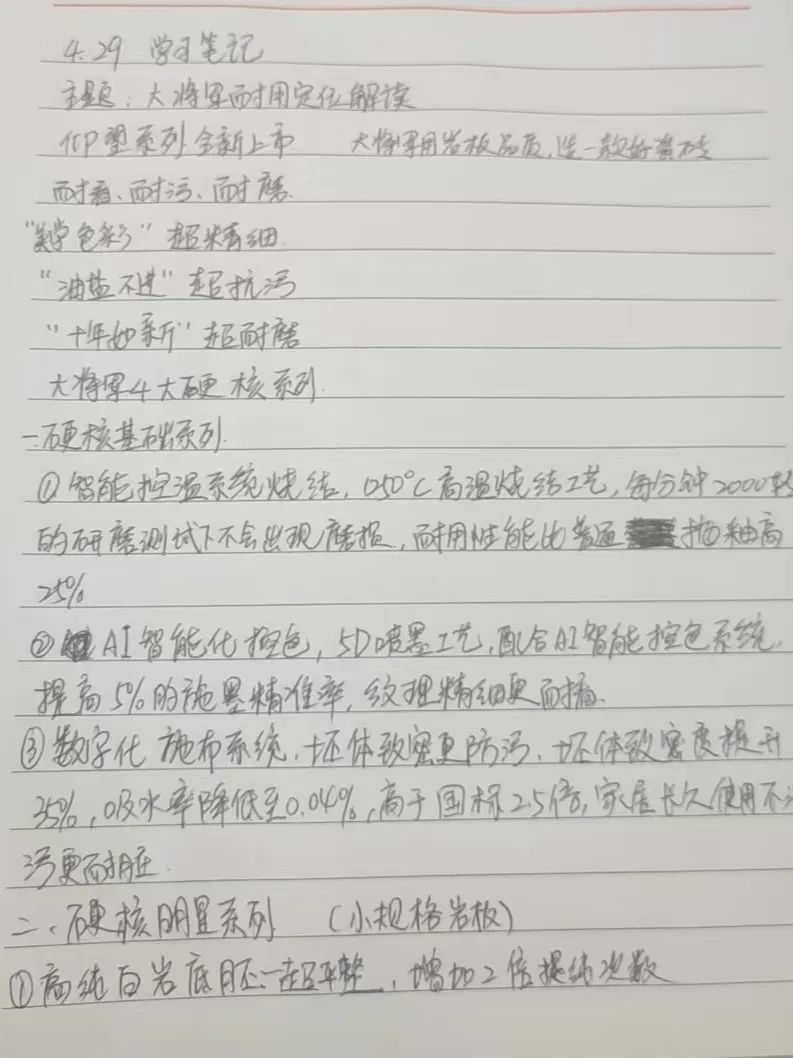 4.29 学习笔记
主题：大将军耐用定位解读
系列全新上市 大将军用岩板品质,造一款好瓷砖
耐看、耐污、耐磨.
"美学色彩" 超精细.
"油盐不进" 超抗污
"十年如新" 超耐磨
大将军4大硬核系列.
一.硬核基础系列.
①智能控温系统烧结, 1250℃高温烧结工艺, 每分钟2000转
的研磨测试下不会出现磨损, 耐用性能比普通 抛釉高
25%
② AI智能化控色, 5D喷墨工艺, 配合AI智能控色系统,
提高5%的施墨精准率, 纹理精细更耐看、
③数字化施布系统, 坯体致密更防污、坯体致密度提升
35%, 吸水率降低至0.04%, 高于国标2.5倍, 家居长久使用不
污更耐脏.
二、硬核明星系列 (小规格岩板)
①高纯白岩底胚:超平整, 增加2倍提纯次数